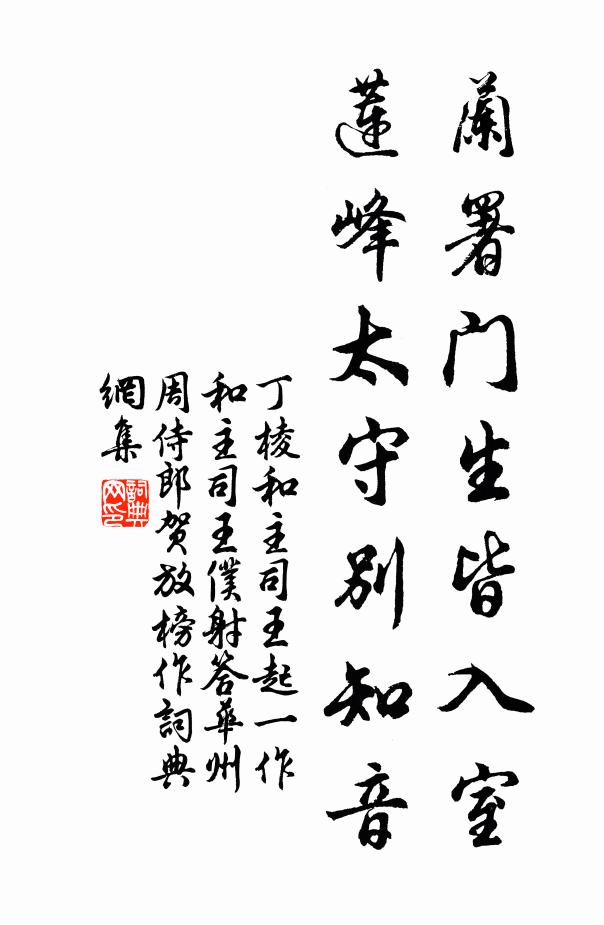 蘭署門生皆入室
蓮峰太守別知音
丁棱和主司王起一作
和主司王僕射答華州
周侍郎贺放榜作詞典
網集
詞典網印